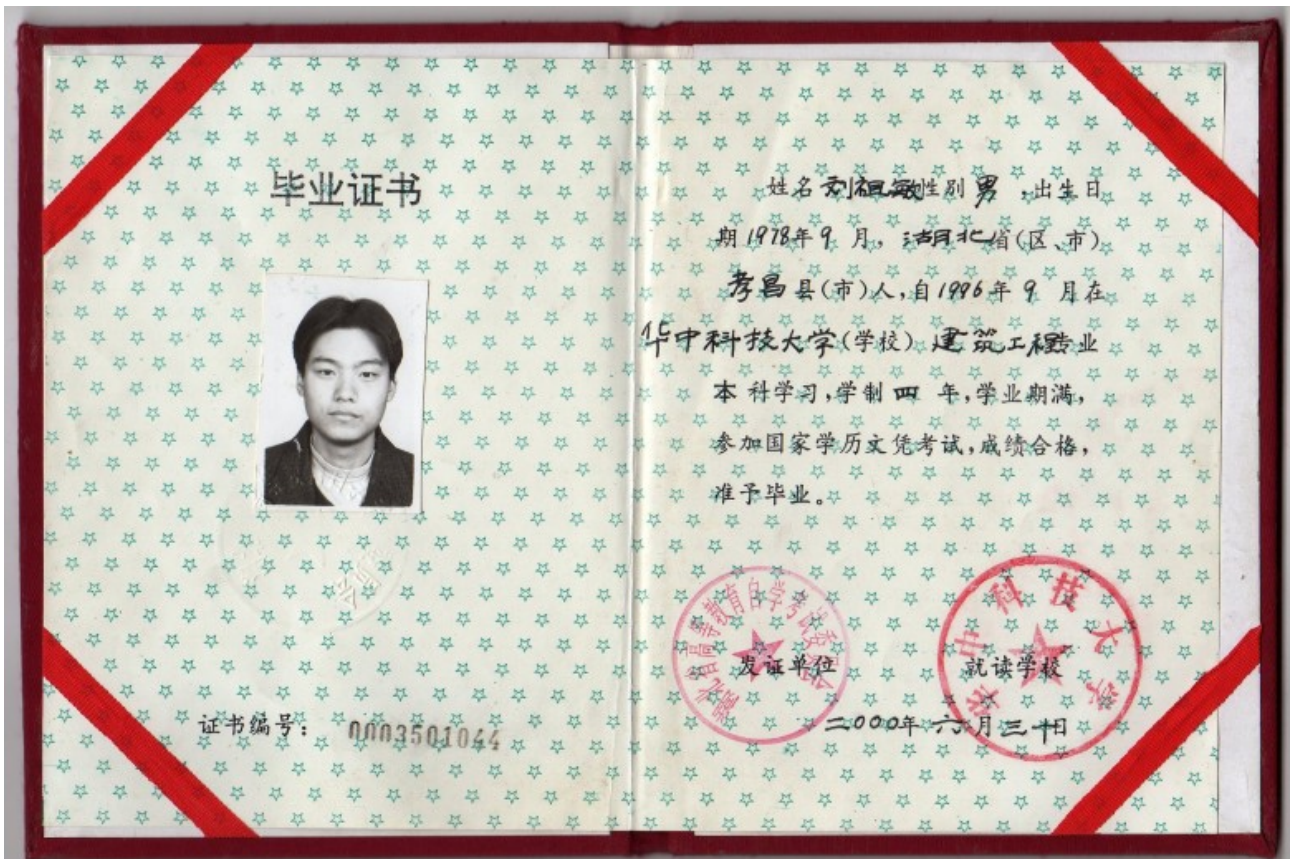 毕业证书
证书编号: 0003501044
姓名 刘祖敏 性别 男 ,出生日
期 1978年 9 月, 湖北省(区、市)
孝昌县(市)人,自1996年 9 月在
华中科技大学(学校) 建筑工程专业
本 科学习,学制 四 年,学业期满,
参加国家学历文凭考试,成绩合格,
准予毕业。
湖北省高等教育自学考试委员会
华中科技大学
发证单位 就读学校
二000年 六月三十日